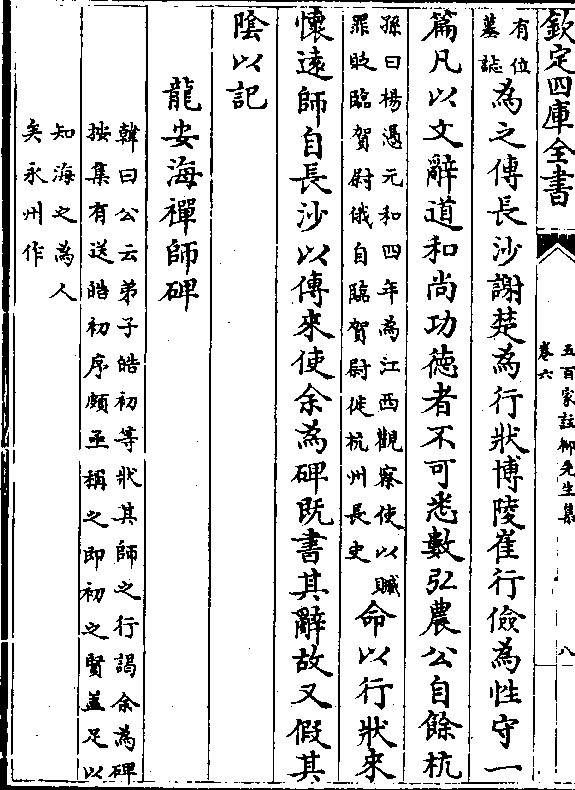 欽定四庫全書
五百家註柳先生集
卷六
八
有位
墓誌
為之傳長沙謝楚為行狀博陵崔行儉為性守一
篇凡以文辭道和尚功徳者不可悉數弘農公自餘杭
孫曰楊憑元和四年為江西觀察使以贓
罪貶臨賀尉俄自臨賀尉徙杭州長史
命以行狀來
懷遠師自長沙以傳來使余為碑既書其辭故又假其
陰以記
龍安海禪師碑
韓曰公云弟子皓初等狀其師之行謁余為碑
按集有送皓初序頗亟稱之即初之賢蓋足以
知海之為人
矣永州作